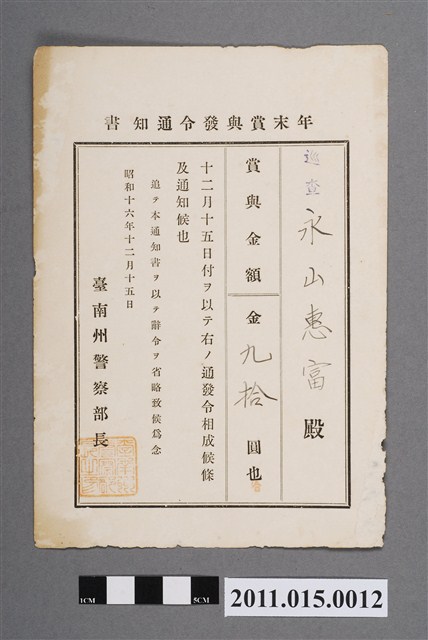 年末賞與發令通知書
巡查 永山惠富 殿
賞與金額 金九拾圓也
十二月十五日付ヲ以テ右ノ通發令相成候條
及通知候也
追テ本通知書ヲ以テ辭令ヲ省略致候爲念
昭和十六年十二月十五日
臺南州警察部長
1CM
5CM
2011.015.0012